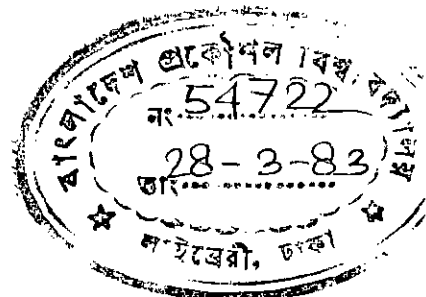 বাংলাদেশ প্রকৌশল বিশ্ববিদ্যালয়
নং 54722
তাং 28-3-83
লাইব্রেরী, ঢাকা